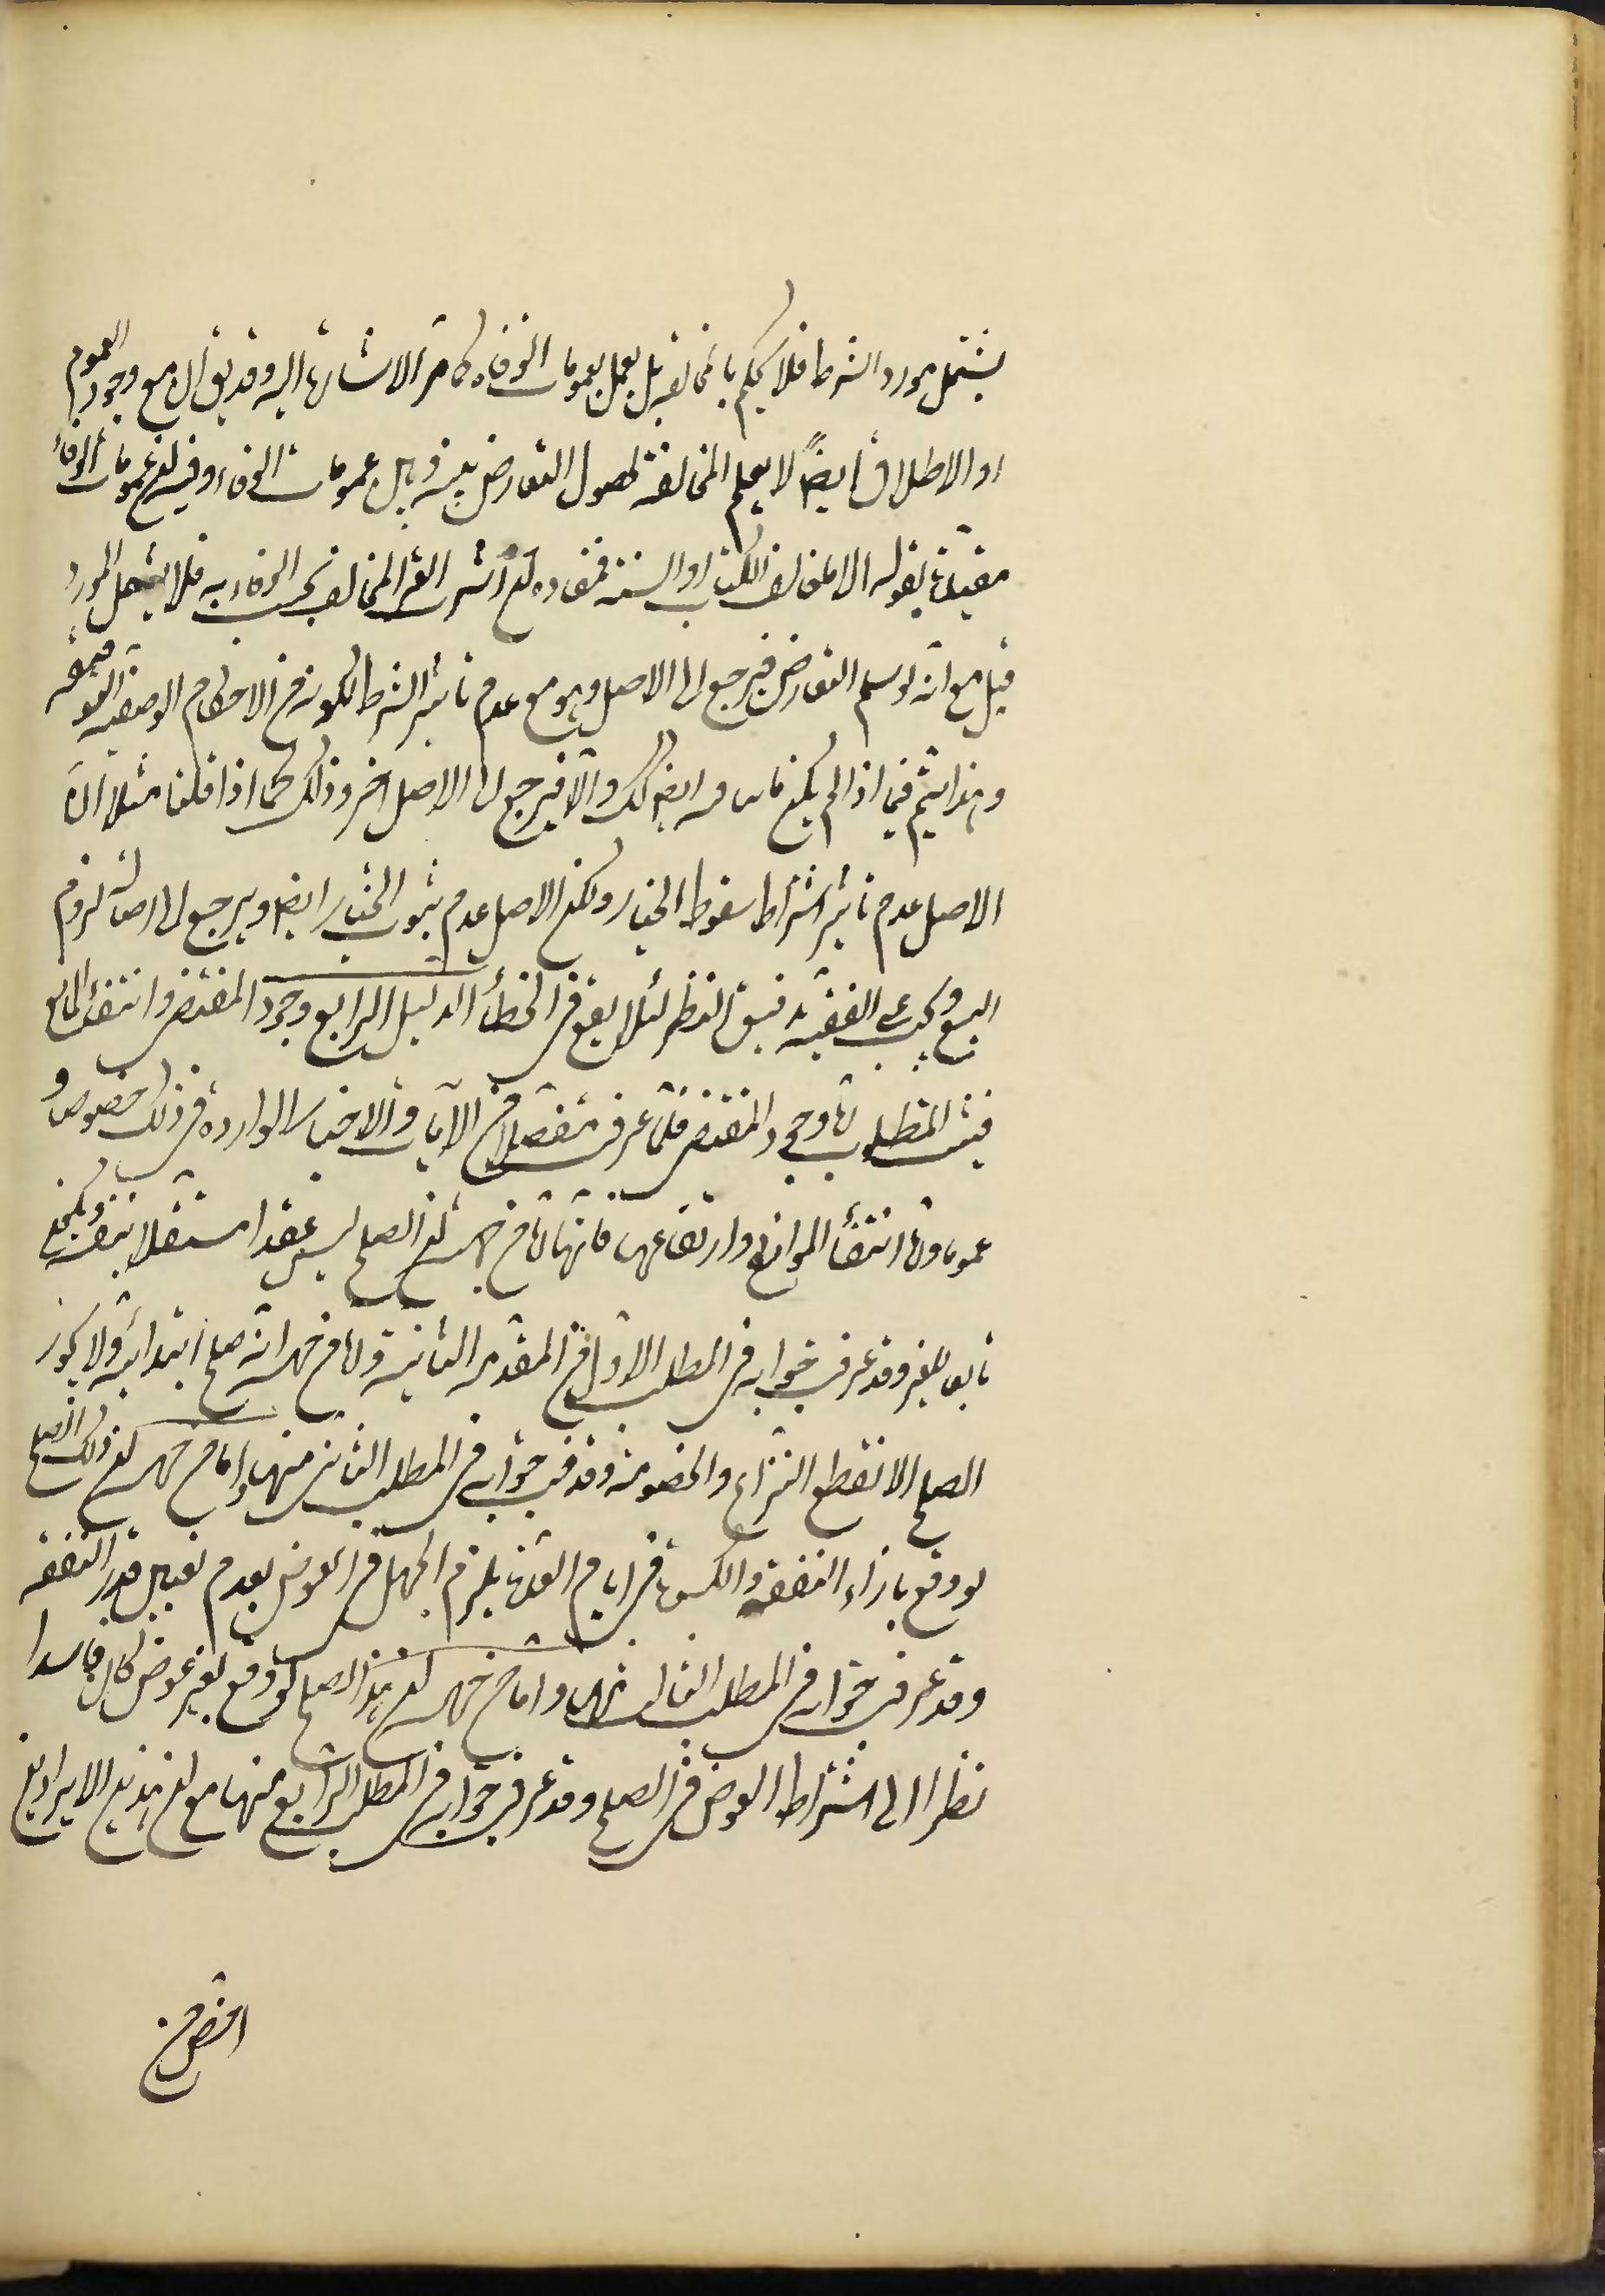 يشتمل مورد الشرط فلا يحكم بالمخالفة بل يعمل بعمومات الوفاء كما مر الاشارة اليه وقد يقال مع وجود العموم
او الاطلاق ايضاً لا يعلم المخالفة لحصول التعارض بينه وبين عمومات الوفاء وفيه ان عمومات الوفاء
مقيدة بقوله الا ما خالف الكتاب او السنة فمفاده ان الشرط الغير المخالف يجب الوفاء به فلا يشمل المورد
قيل مع انه لو سلم التعارض فيرجع الى الاصل وهو مع عدم تاثير الشرط لكونه من الاحكام الوضعية التوقيفية
وهذا يتم فيما اذا لم يكن ايضا كك والا فيرجع الى الاصل اخر وذلك كما اذا قلنا مثلا ان
الاصل عدم تاثير اشتراط سقوط الخيار ولكن الاصل عدم ثبوت الخيار ايضا ويرجع الى اصالة لزوم
البيع ويجب على الفقيه تدقيق النظر لئلا يقع في الخطأ الدليل الرابع وجود المقتضى وانتفاء المانع
فيثبت المطلوب اما وجود المقتضى فلما عرفت مفصلا من الآيات والاخبار الواردة في ذلك خصوصا و
عموما واما انتفاء الموانع وارتفاعها فانها اما من جهة ان الصلح ليس عقدا مستقلا بنفسه بل يكون
تابعا للغير وقد عرفت جوابه في المطلب الاول من المقدمة الثانية واما من جهة انه صلح ابتدائية ولا يجوز
الصلح الا لقطع النزاع والخصومة وقد عرفت جوابه في المطلب الثاني منها واما من جهة ان ذلك الصلح
لو وقع بازاء النفقة والكسوة في ايام العدة يلزم الجهل في العوض بعدم تعيين قدر النفقة
وقد عرفت جوابه في المطلب الثالث منها واما من جهة ان هذا الصلح لو وقع بغير عوض لكان فاسدا
نظرا الى اشتراط العوض في الصلح وقد عرفت جوابه في المطلب الرابع منها مع ان هذين الايرادين
اخص من